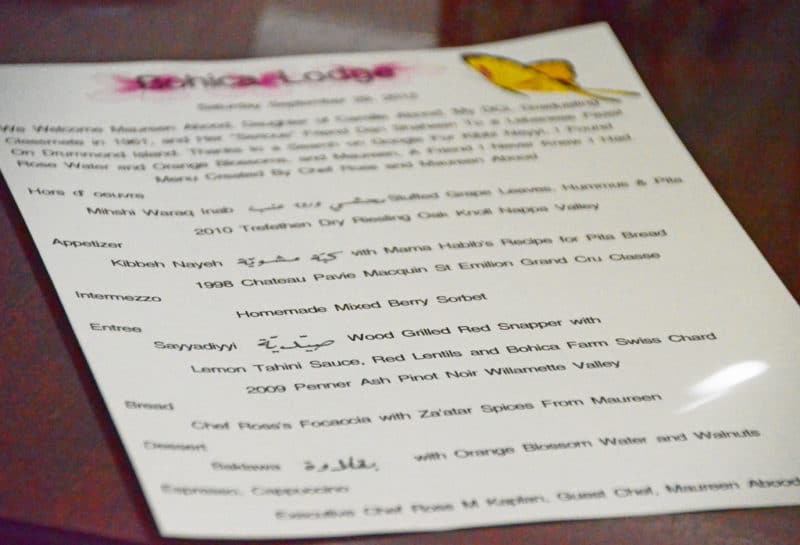 Bohica Lodge
Saturday, September 2012
We Welcome Maureen Abood, Daughter of Camille Abood, My DCL Graduating
Classmate in 1961, and Her "Serious" Friend Dan Shaheen To a Lebanese Feast
On Drummond Island. Thanks to a Search on Google For Kibbi Nayyi, I Found
Rose Water and Orange Blossoms, and Maureen, a Friend I Never Knew I Had
Menu Created By Chef Ross and Maureen Abood
Hors d' oeuvre
Mihshi Waraq Inab محشي ورق عنب Stuffed Grape Leaves, Hummus & Pita
2010 Trefethen Dry Riesling Oak Knoll Nappa Valley
Appetizer
Kibbeh Nayeh كبة مشويّة with Mama Habib's Recipe for Pita Bread
1998 Chateau Pavie Macquin St Emilion Grand Cru Classe
Intermezzo
Homemade Mixed Berry Sorbet
Entree
Sayyadiyyi صيّديّة Wood Grilled Red Snapper with
Lemon Tahini Sauce, Red Lentils and Bohica Farm Swiss Chard
2009 Penner Ash Pinot Noir Willamette Valley
Bread
Chef Ross's Focaccia with Za'atar Spices From Maureen
Dessert
Baklawa بقلاوة with Orange Blossom Water and Walnuts
Espresso, Cappuccino
Executive Chef Ross M Kaplan, Guest Chef, Maureen Abood